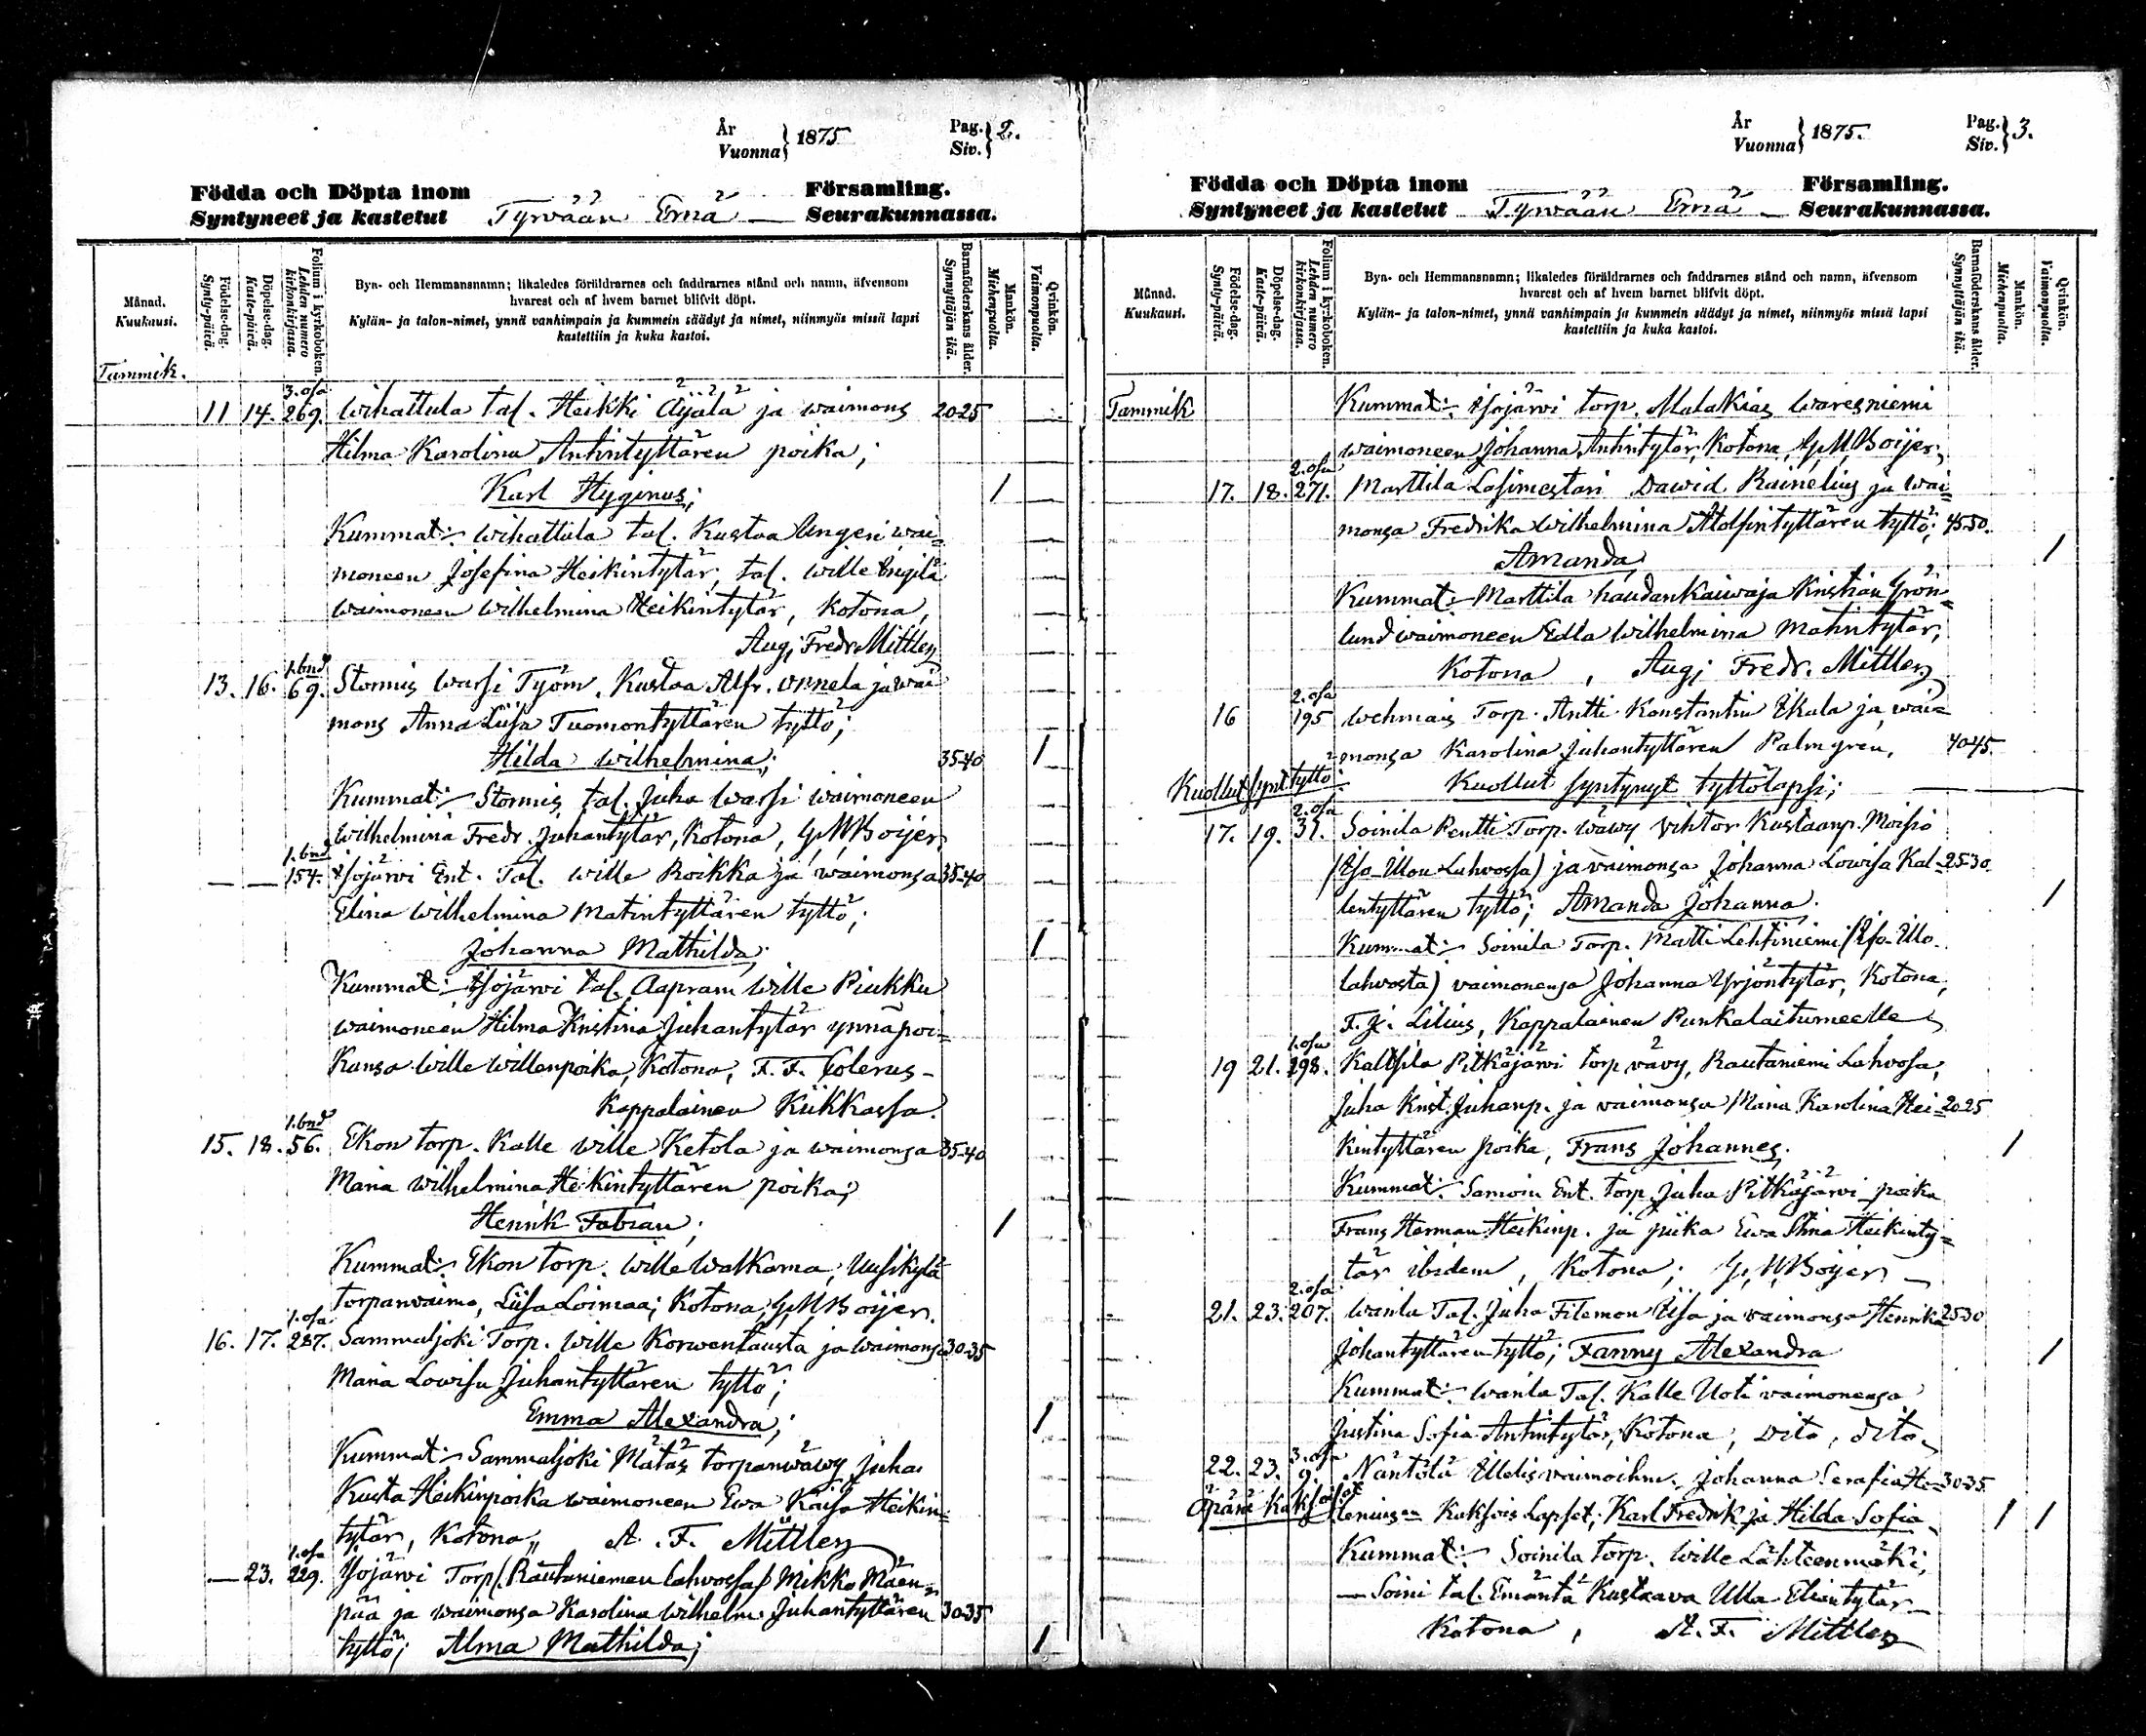 År
Vuonna } 1875
Pag.
Siv. } 2.
Födda och Döpta inom Församling.
Syntyneet ja kastetut Tyrvään Emä — Seurakunnassa.
Månad.
Kuukausi.
Födelse-dag.
Synty-päivä.
Döpelse-dag.
Kaste-päivä.
Folium i kyrkoboken.
Lehden numero kirkonkirjassa.
Byn- och Hemmansnamn; likaledes föräldrarnes och faddrarnes stånd och namn, äfvensom
hvarest och af hvem barnet blifvit döpt.
Kylän- ja talon-nimet, ynnä vanhimpain ja kummein säädyt ja nimet, niinmyös missä lapsi
kastettiin ja kuka kastoi.
Barnaföderskans ålder.
Synnyttäjän ikä.
Mankön.
Miehenpuolia.
Qvinkön.
Vaimonpuolia.
Tammik.
3. osa
11 14. 269. Wihattula tal. Heikki Äijälä ja waimons 20-25
Hilma Karolina Antintyttären poika;
Karl Hyginus; 1
Kummat: Wihattula tal. Kustaa Angeri wai=
moneen Josefina Heikintytär, tal. Wille Engilä
waimoneen Wilhelmina Heikintytär, Kotona,
Aug. Fredr. Mittler
1. bnd
13. 16. 69. Stormis Warsi Työm. Kustaa Alfr. Onnela ja wai
mons Anna Liisa Tuomontyttären tyttö;
Hilda Wilhelmina; 35-40 1
Kummat: Stormis tal. Juha Warsi waimoneen
Wilhelmina Fredr. Juhantytär, Kotona, G. M. Boijer,
1. bnd
— — 154. Isojärvi Ent. Tal. Wille Roikka ja waimonsa 35-40
Elina Wilhelmina Matintyttären tyttö;
Johanna Mathilda; 1
Kummat: Isojärwi tal. Aapram Wille Piukku
waimoneen Hilma Kristina Juhantytär ynnä poi=
kansa Wille Willenpoika, Kotona, F. F. Colerus
Kappalainen Kiikkassa.
1. bnd
15. 18. 56. Ekon torp. Kalle Wille Ketola ja waimonsa 35-40
Maria Wilhelmina Heikintyttären poika;
Henrik Fabian; 1
Kummat: Ekon torp. Wille Walkama, Uusikylä
torpanwaimo, Liisa Loimaa; Kotona, G. M. Boijer.
1. osa
16. 17. 287. Sammaljoki Torp. Wille Korwentausta ja waimonsa 30-35
Maria Lowisa Juhantyttären tyttö;
Emma Alexandra; 1
Kummat: Sammaljoki Mätäs torpanwäwy Juha
Kusta Heikinpoika waimoneen Ewa Kaisa Heikin=
tytär, Kotona,, A. F. Mittler
1. osa
— 23. 229. Yöjärvi Torp. (Rautaniemen lahwossa) Mikko Mäen=
pää ja waimonsa Karolina Wilhelm. Juhantyttären 30-35
tyttö; Alma Mathilda; 1
År
Vuonna } 1875.
Pag.
Siv. } 3.
Födda och Döpta inom Församling.
Syntyneet ja kastetut Tyrwään Emä — Seurakunnassa.
Månad.
Kuukausi.
Födelse-dag.
Synty-päivä.
Döpelse-dag.
Kaste-päivä.
Folium i kyrkoboken.
Lehden numero kirkonkirjassa.
Byn- och Hemmansnamn; likaledes föräldrarnes och faddrarnes stånd och namn, äfvensom
hvarest och af hvem barnet blifvit döpt.
Kylän- ja talon-nimet, ynnä vanhimpain ja kummein säädyt ja nimet, niinmyös missä lapsi
kastettiin ja kuka kastoi.
Barnaföderskans ålder.
Synnyttäjän ikä.
Mankön.
Miehenpuolia.
Qvinkön.
Vaimonpuolia.
Tammik Kummat: Isojärwi torp. Malakias Waresniemi
waimoneen Johanna Antintytär, Kotona, G. M. Boijer,
2. osa
17. 18. 271. Marttila Lasimestari Dawid Rainelius ja wai=
monsa Fredrika Wilhelmina Adolfintyttären tyttö; 45-50.
Amanda 1
Kummat: Marttila haudankaiwaja Kristian Grön=
lund waimoneen Edla Wilhelmina Matintytär,
Kotona, Aug. Fredr. Mittler
2. osa
16 195 Wehmais Torp. Antti Konstantin Ekala ja wai=
monsa Karolina Juhantyttären Palmgren, 40-45.
Kuollut synt. tyttö Kuollut syntynyt tyttölapsi;
2. osa
17. 19. 31. Soinila Pentti Torp. wäwy Vihtor Kustaanp. Moisio
(Iso-Ulou Lahwossa) ja vaimonsa Johanna Lowisa Kal= 25-30.
lentyttären tyttö; Amanda Johanna. 1
Kummat: Soinila Torp. Matti Lehtiniemi (Iso-Ulo
lahwosta) vaimonensa Johanna Yrjöntytär, Kotona,
F. J. Lilius, Kappalainen Punkalaitumeelle
1. osa
19 21. 298. Kaltsila Pitkäjärvi torp. vävy, Rautaniemi Lahvosa,
Juha Krist. Juhanp. ja vaimonsa Maria Karolina Hei= 20-25
kintyttären poika, Frans Johannes; 1
Kummat: Samoin Ent. torp. Juha Pitkäjärvi poika
Frans Herman Heikinp. ja piika Ewa Stina Heikinty=
tär ibidem, Kotona; G. M. Boijer —
2. osa
21. 23. 207. Warila Tal. Juha Filemon Uisa ja vaimonsa Henrika 25-30
Johantyttären tyttö; Fanny Alexandra 1
Kummat: Warila Tal. Kalle Uoti vaimonensa
Justina Sofia Antintytär, Kotona, dito, dito
3. osa
22. 23. 9. Näntölä Uelis vaimoihm. Johanna Serafia He= 30-35.
Äpärä Kaksoiset leniusen Kaksois Lapset, Karl Fredrik ja Hilda Sofia 1 1
Kummat: Soinila torp. Wille Lähteenmäki,
— Soini tal. Emäntä Kustaava Ulla Eliantytär
Kotona, A. F. Mittler